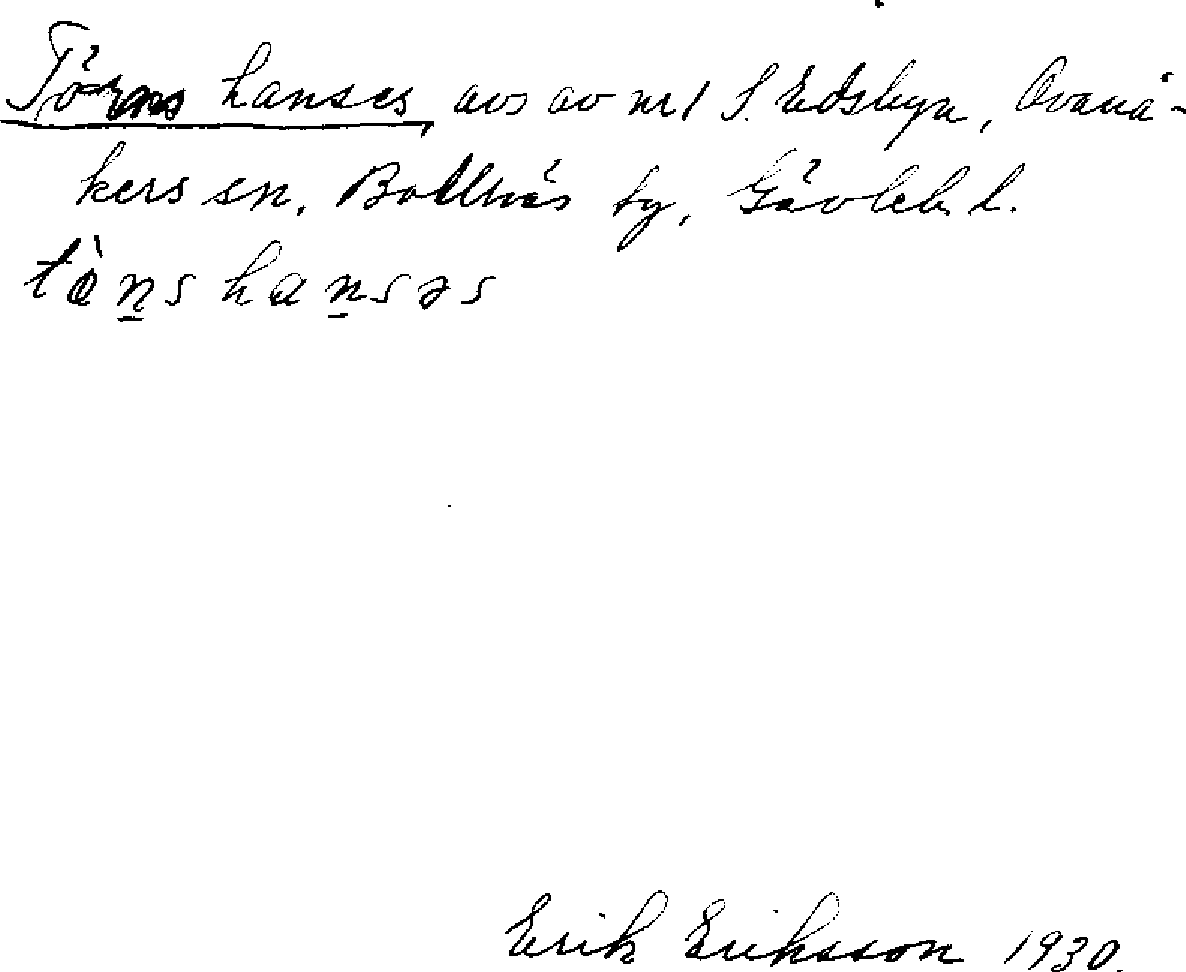 Törns hanses, avs av nr 1 S. Edsbyn, Ovanå-
kers sn, Bollnäs ty, Gävleb. l.
tö̀n̲s han̲səs
Erik Eriksson 1930.